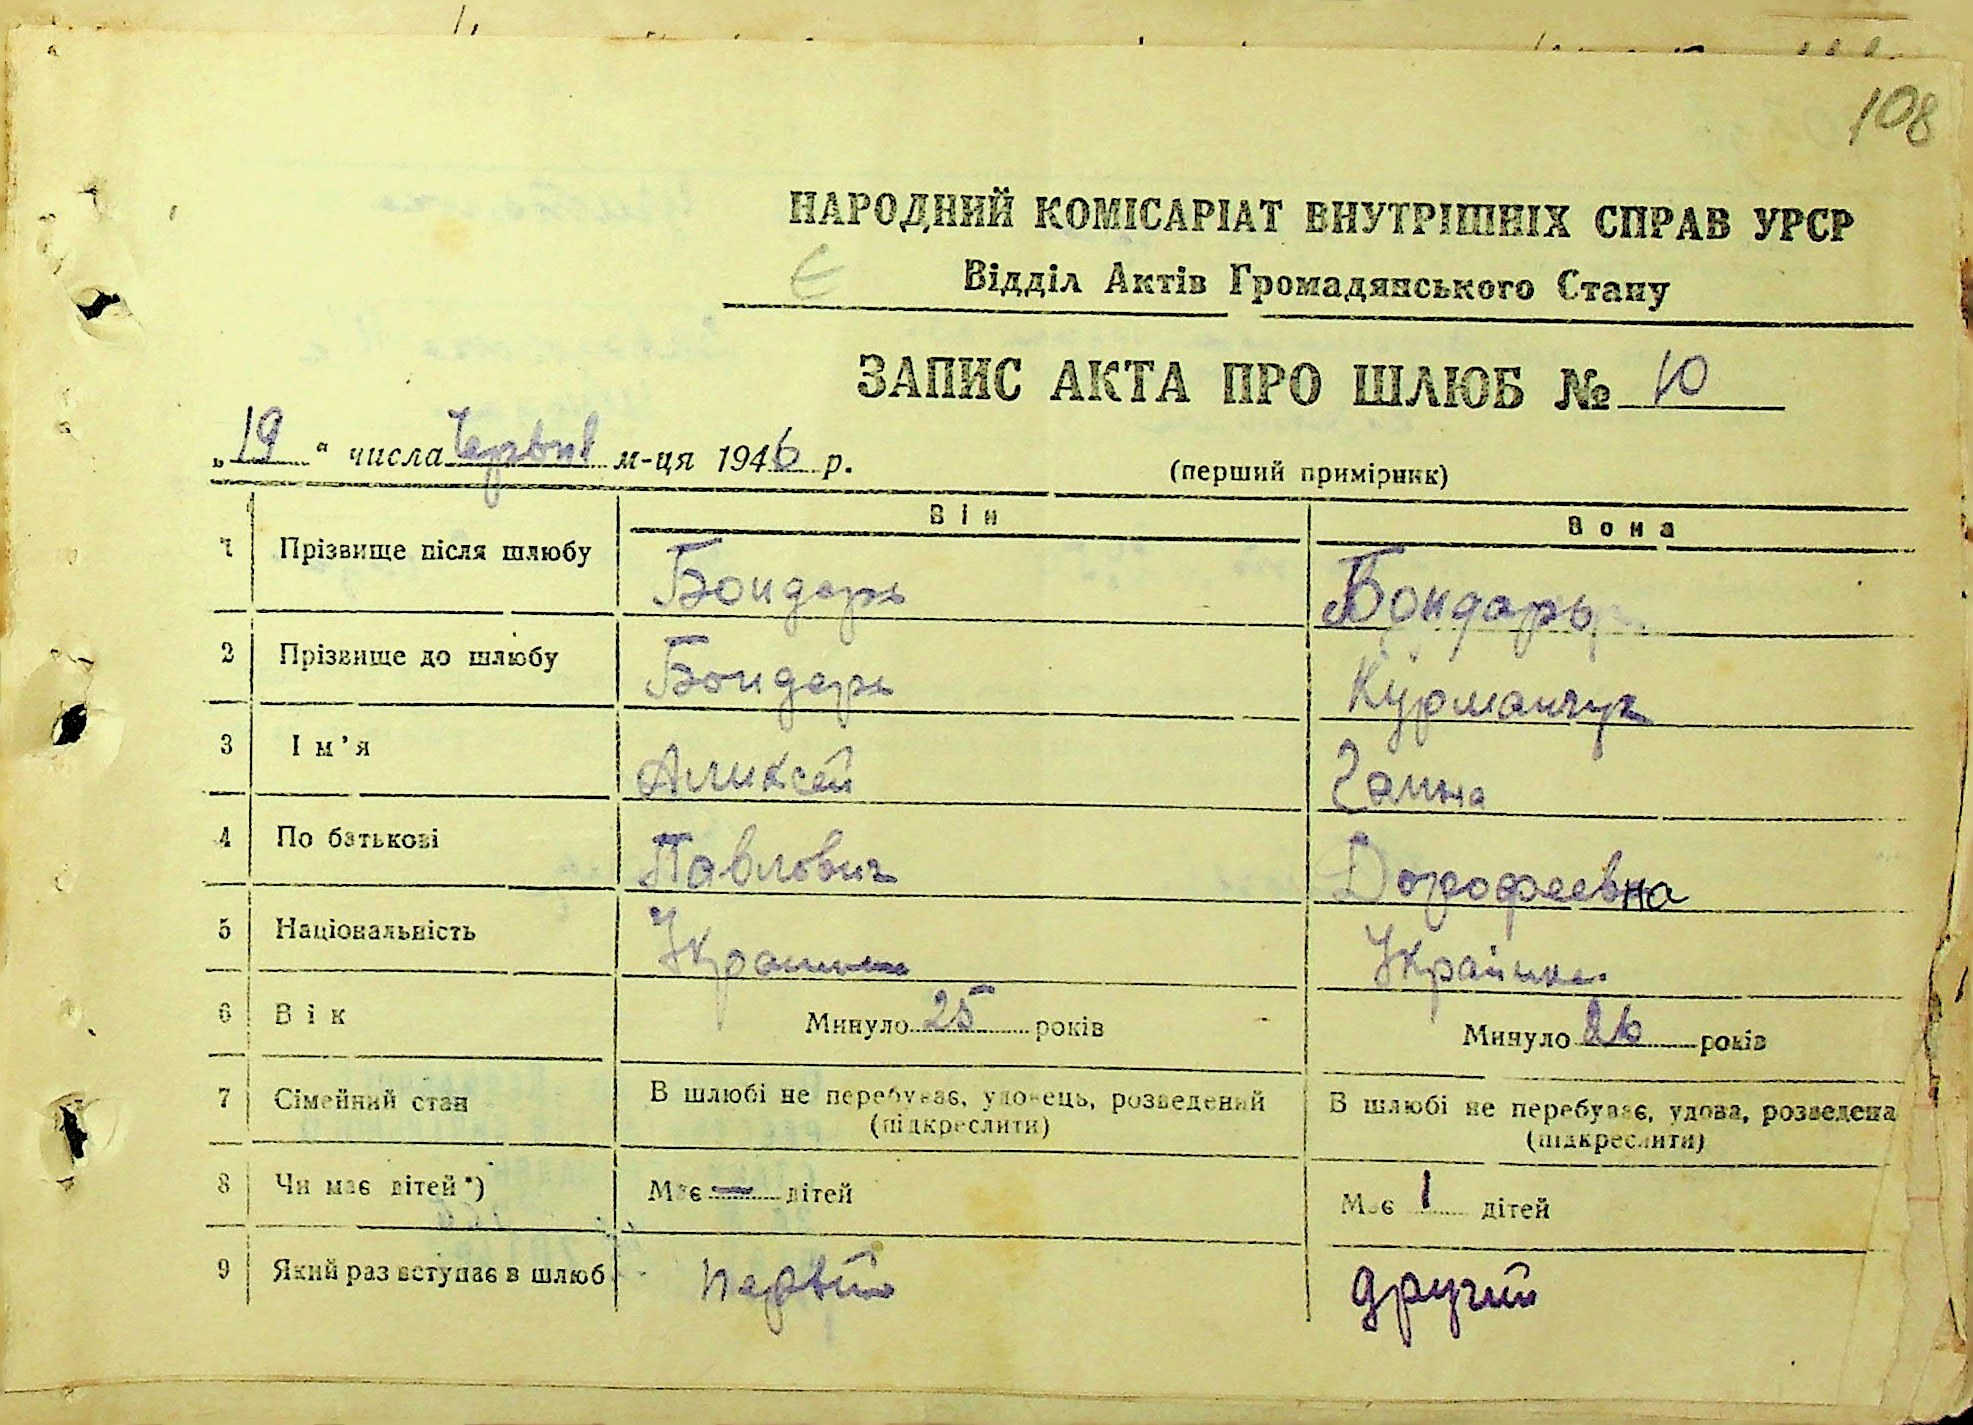 108
НАРОДНИЙ КОМІСАРІАТ ВНУТРІШНІХ СПРАВ УРСР
Є
Відділ Актів Громадянського Стану
ЗАПИС АКТА ПРО ШЛЮБ № 10
„19" числа Червня м-ця 1946 р.
(перший примірник)
Він Вона
1 Прізвище після шлюбу Бондарь Бондарь
2 Прізвище до шлюбу Бондарь Курманчук
3 Ім'я Аликсей Галина
4 По батькові Павлович Дорофеевна
5 Національність Украинец Украйинка
6 Вік Минуло 25 років Минуло 26 років
7 Сімейний стан В шлюбі не перебуває, удовець, розведений В шлюбі не перебуває, удова, розведена
(підкреслити) (підкреслити)
8 Чи має дітей*) Має — дітей Має 1 дітей
9 Який раз вступає в шлюб первий другий